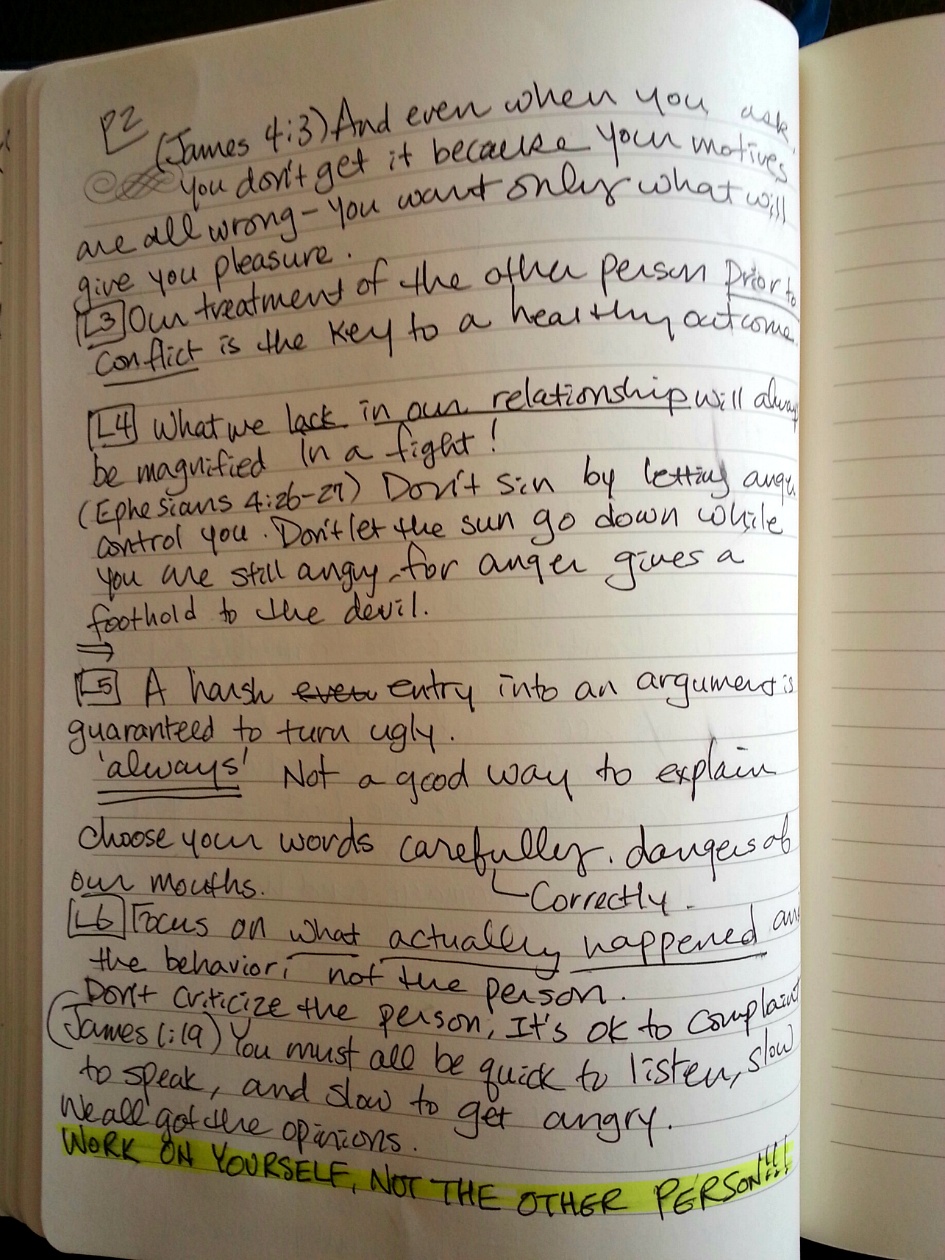 P2
(James 4:3) And even when you ask,
you don't get it because your motives
are all wrong - you want only what will
give you pleasure.
L3 Our treatment of the other person prior to
conflict is the key to a healthy outcome.
L4 What we lack in our relationship will always
be magnified in a fight!
(Ephesians 4:26-27) Don't sin by letting anger
control you. Don't let the sun go down while
you are still angry, for anger gives a
foothold to the devil.
⇒
L5 A harsh even entry into an argument is
guaranteed to turn ugly.
'always' Not a good way to explain
choose your words carefully. dangers of
our mouths.
Correctly.
L6 Focus on what actually happened and
the behavior; not the person.
Don't criticize the person, It's ok to complain
(James 1:19) You must all be quick to listen, slow
to speak, and slow to get angry.
We all got the opinions.
WORK ON YOURSELF, NOT THE OTHER PERSON!!!